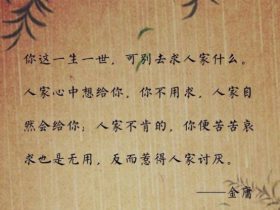 你这一生一世，可别去求人家什么。
人家心中想给你，你不用求，人家自
然会给你；人家不肯的，你便苦苦哀
求也是无用，反而惹得人家讨厌。
——金庸